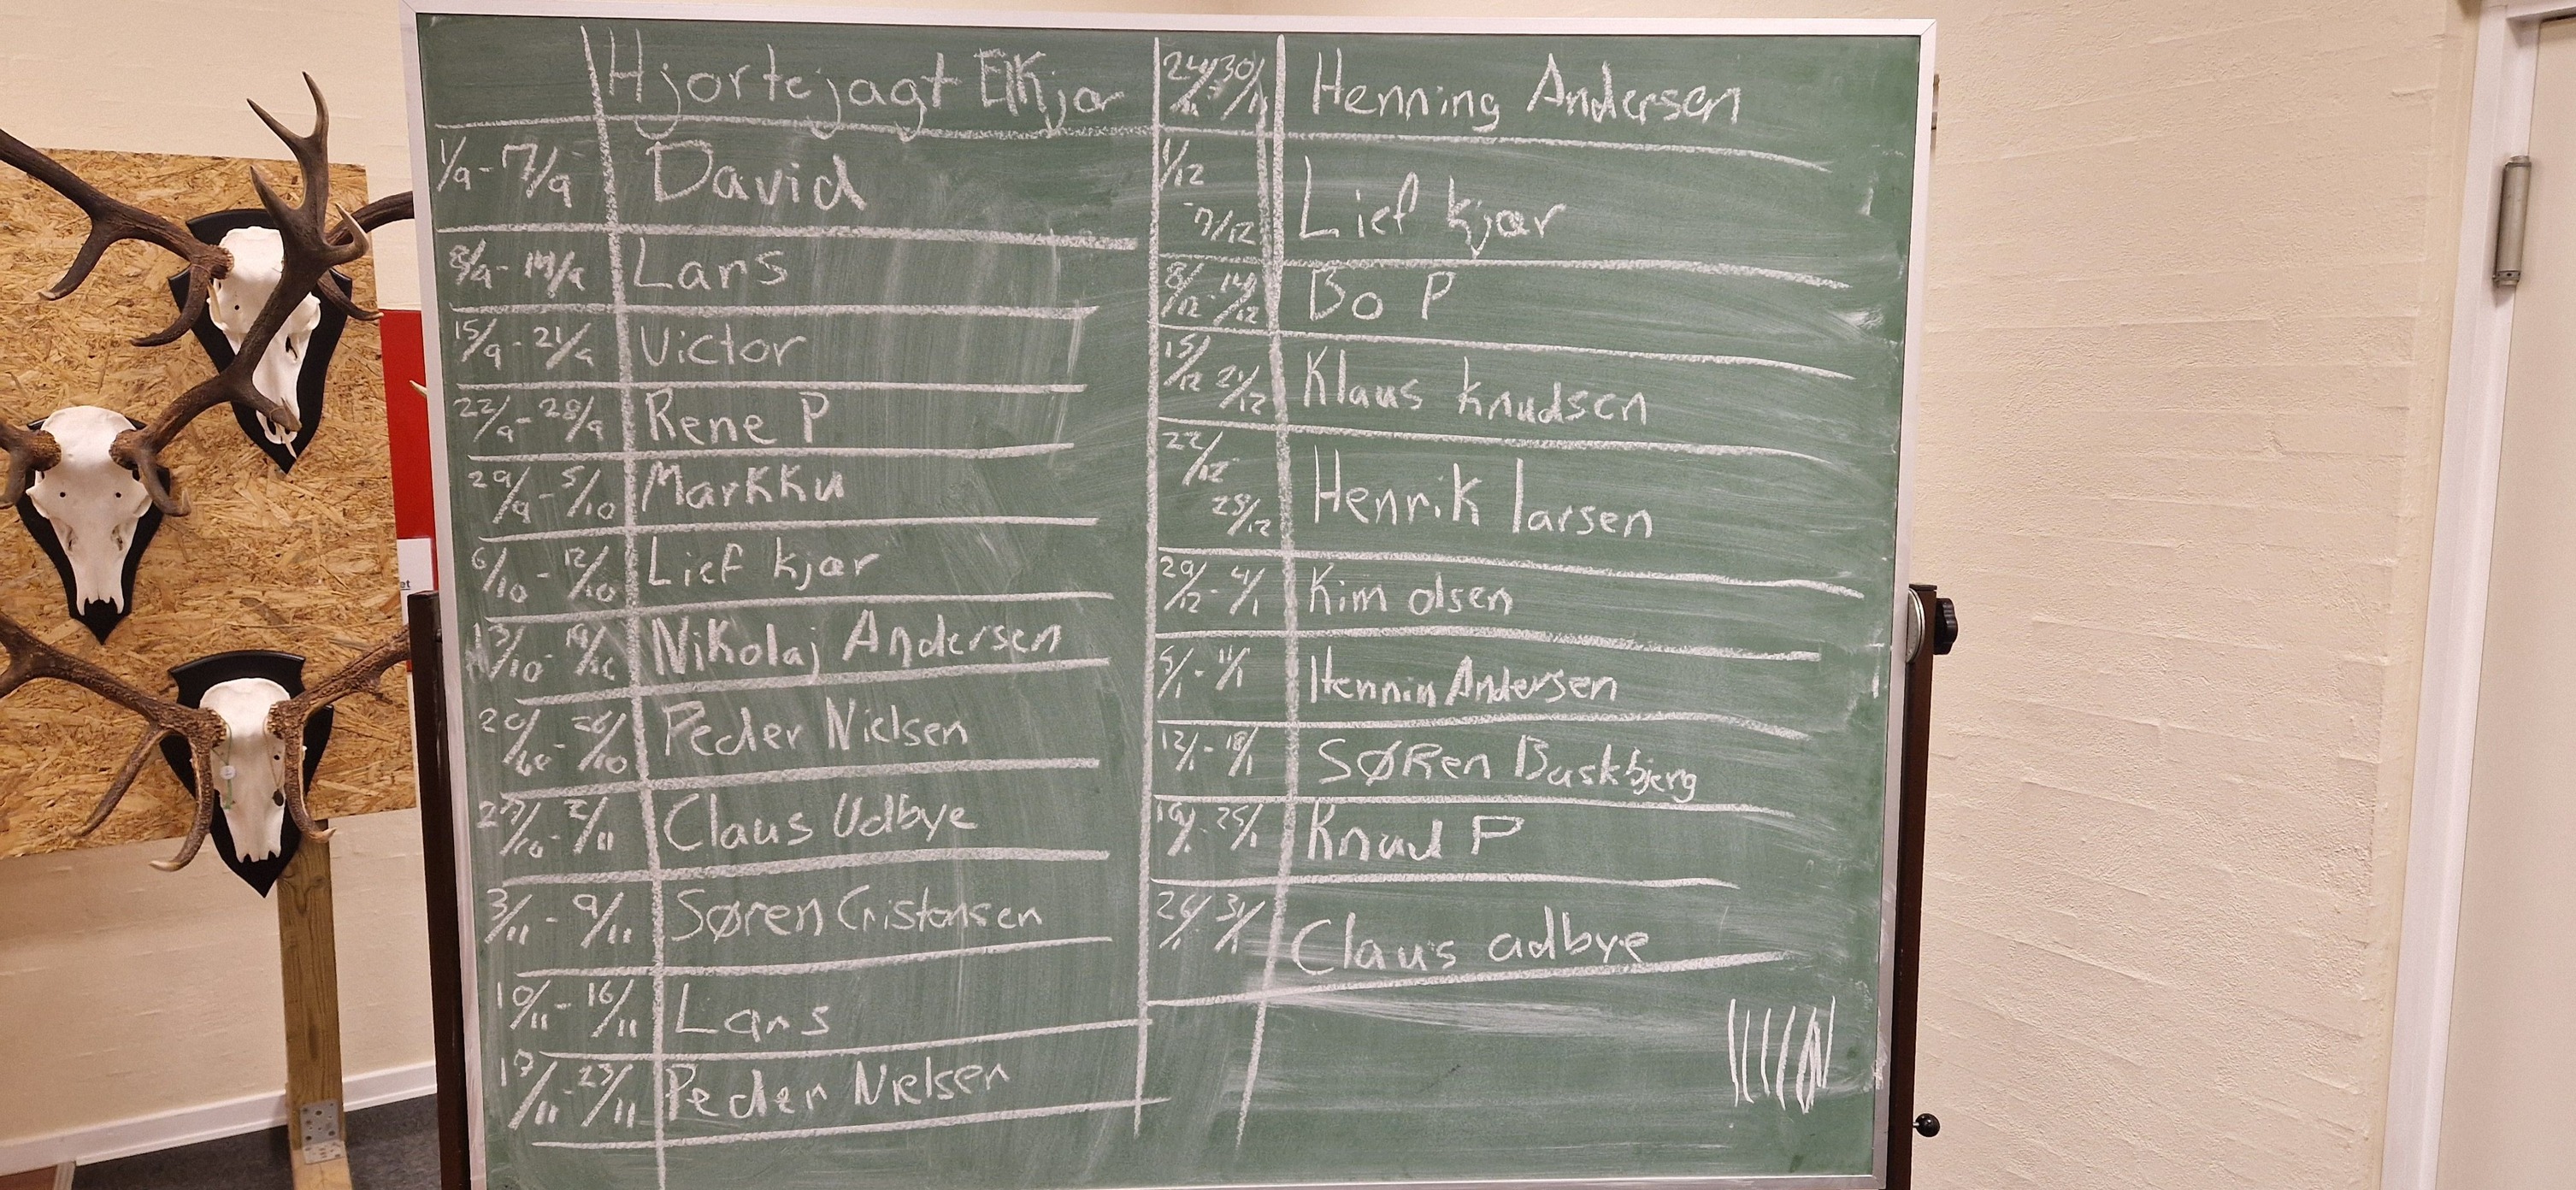 Hjortejagt Elkjær
1/9 - 7/9 David
8/9 - 14/9 Lars
15/9 - 21/9 Victor
22/9 - 28/9 Rene P
29/9 - 5/10 Markku
6/10 - 12/10 Lief kjær
13/10 - 19/10 Nikolaj Andersen
20/10 - 26/10 Peder Nielsen
27/10 - 2/11 Claus Udbye
3/11 - 9/11 Søren Cristensen
10/11 - 16/11 Lars
17/11 - 23/11 Peder Nielsen
24/11 - 30/11 Henning Andersen
1/12 - 7/12 Lief kjær
8/12 - 14/12 Bo P
15/12 21/12 Klaus knudsen
22/12 28/12 Henrik larsen
29/12 - 4/1 Kim olsen
5/1 - 11/1 Hennin Andersen
12/1 - 18/1 SØRen Baskbjerg
19/1 - 25/1 Knud P
26/1 31/1 Claus udbye